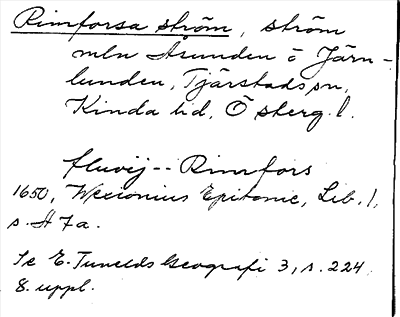 Rimforsa ström, ström
mln Åsunden o Järn-
lunden, Tjärstads sn,
Kinda hd, Ö stberg. l.
fluvij -- Rimfors
1650, Wexionius Epitome, Lib. 1,
s. H 7a.
Se E. Tunelds Geografi 3, s. 224
8. uppl.